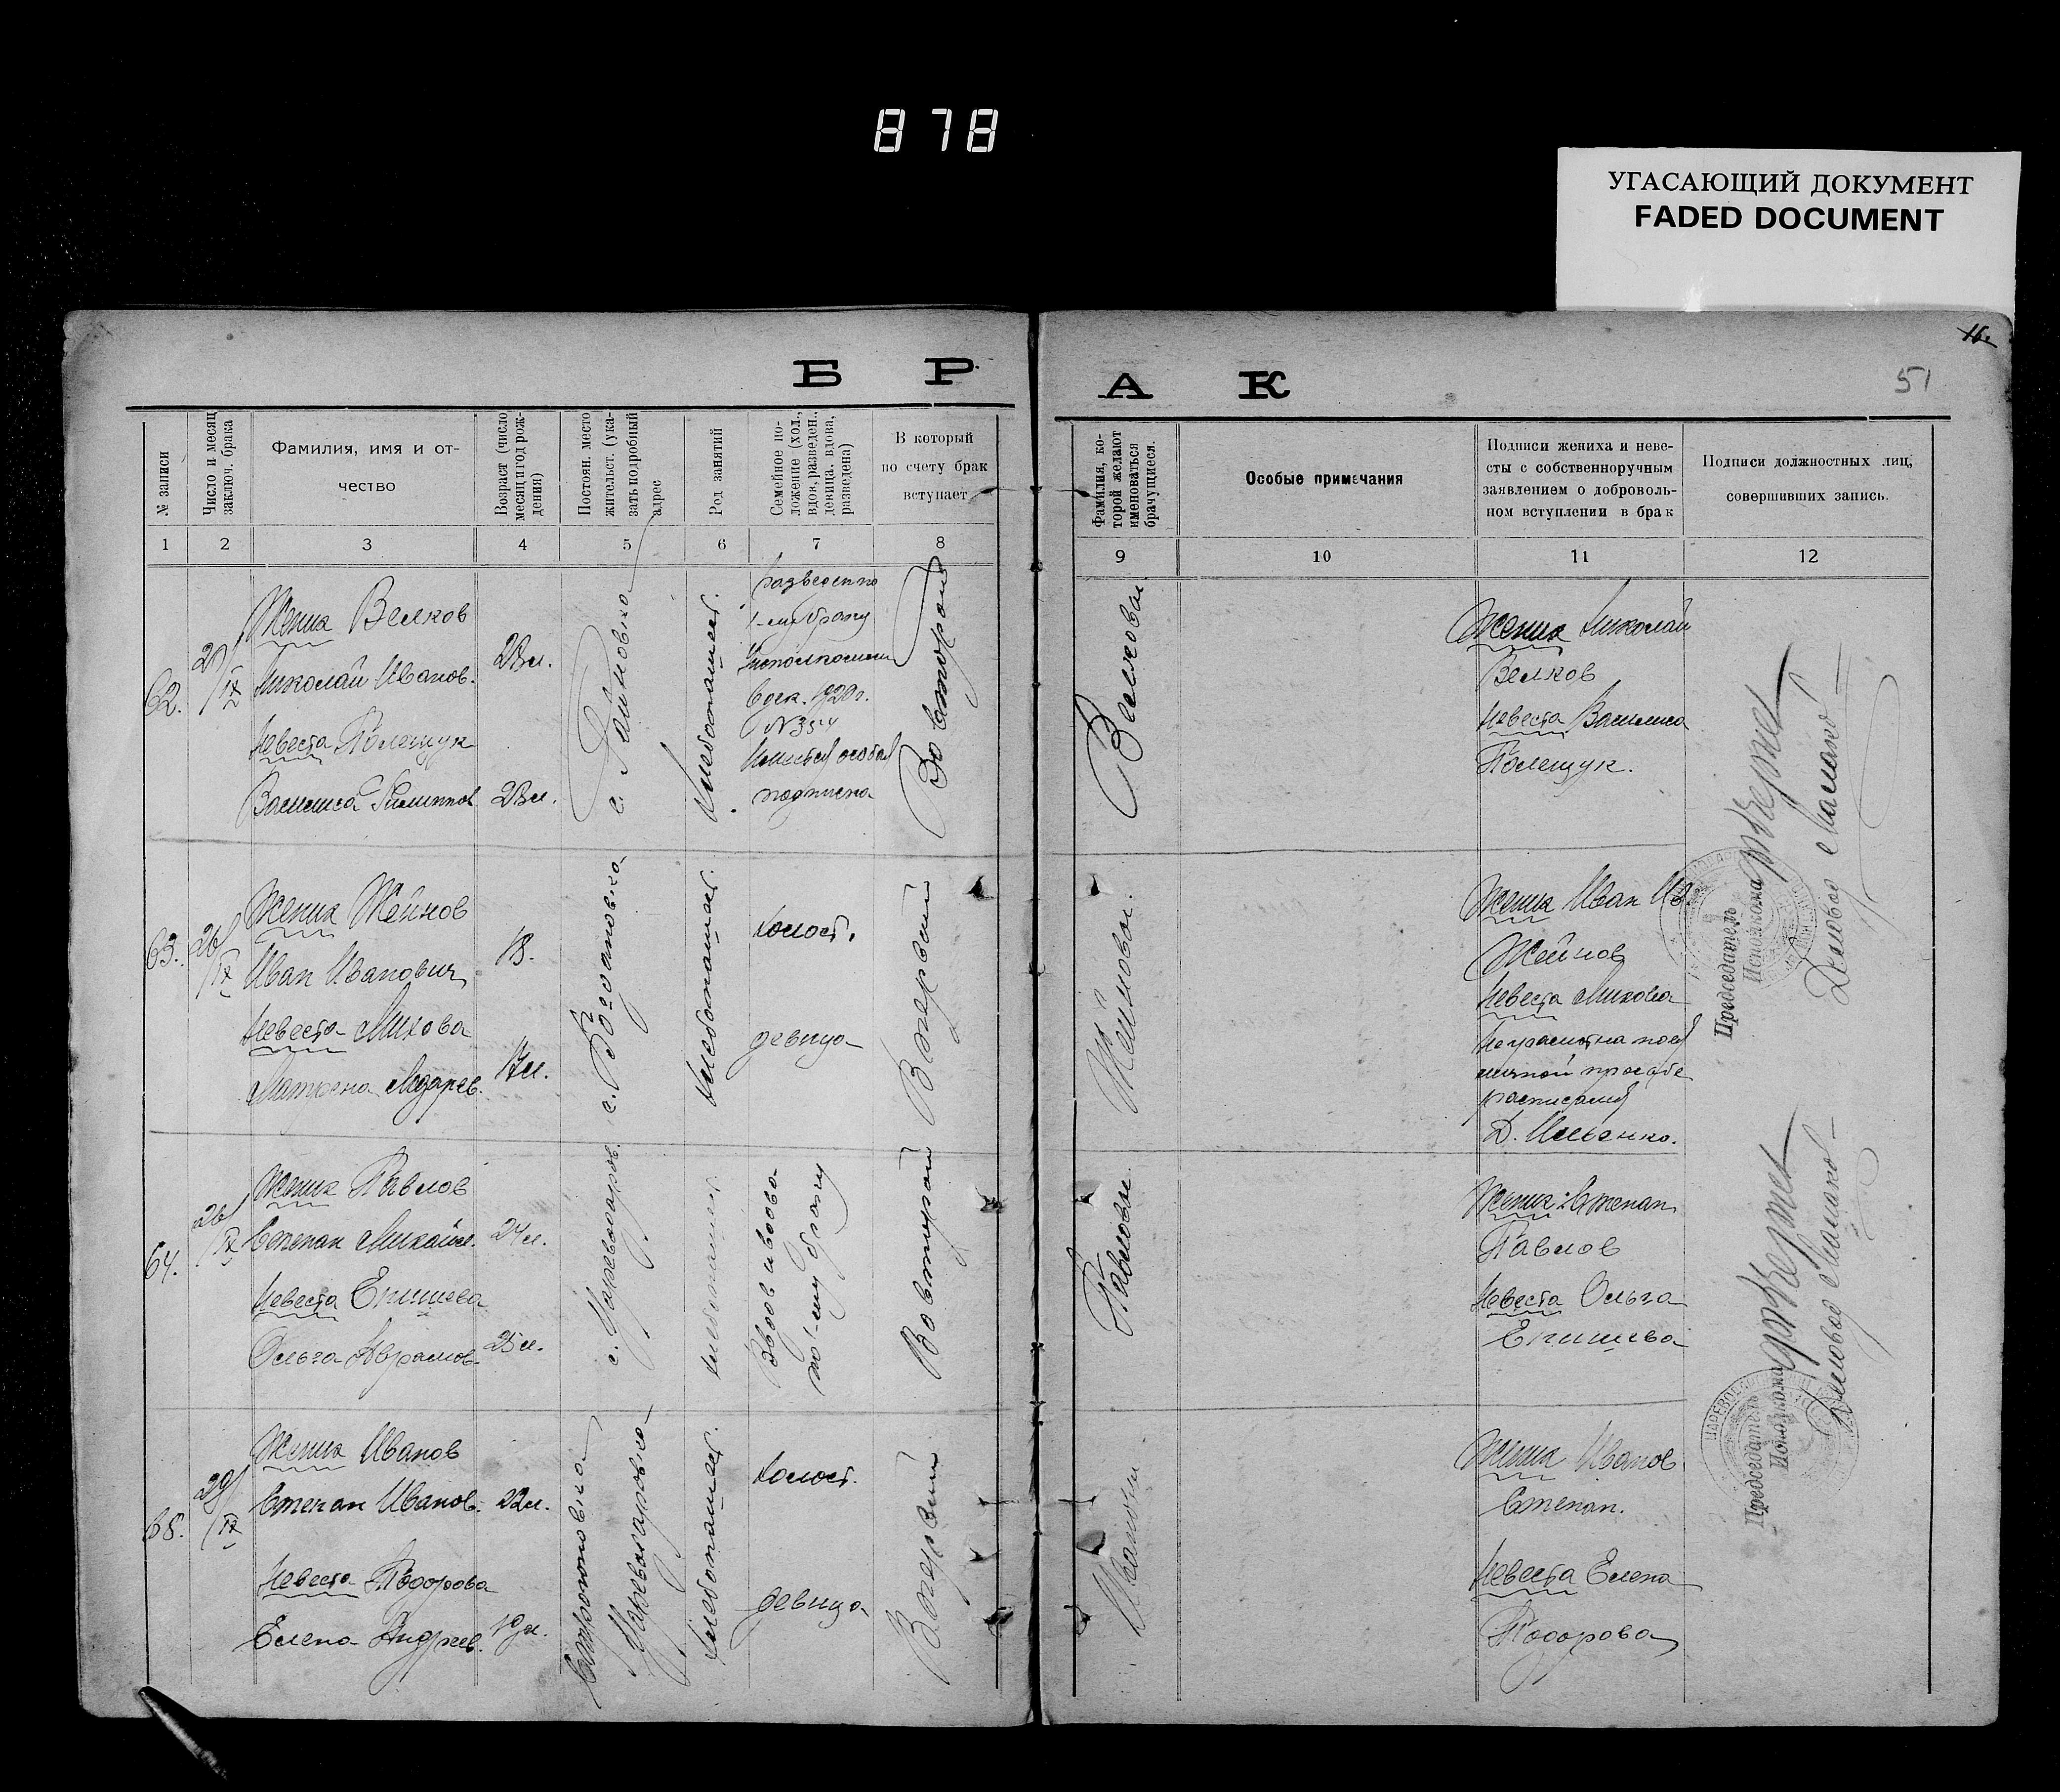 878
УГАСАЮЩИЙ ДОКУМЕНТ
FADED DOCUMENT
16.
51
Б Р А К
№ записи
Число и месяц
заключ. брака
Фамилия, имя и от-
чество
Возраст (число
месяц и год рож-
дения)
Постоян. место
жительст. (ука-
зать подробный
адрес
Род занятий
Семейное по-
ложение (хол.,
вдов, разведен.,
девица, вдова,
разведена)
В который
по счету брак
вступает
Фамилия, ко-
торой желают
именоваться
брачущиеся.
Особые примечания
Подписи жениха и неве-
сты с собственноручным
заявлением о доброволь-
ном вступлении в брак
Подписи должностных лиц,
совершивших запись.
1 2 3 4 5 6 7 8 9 10 11 12
62.
IX
Жених Велков
Николай Иванов.
Невеста Полещук
Василиса Филиппов
23 л.
23 л.
хлебопашест.
разведен по
1-му браку
1920 г.
№ 354
подписка
Во второй
Велковы
Жених Николай
Велков
Невеста Василиса
Полещук.
63.
26/IX
Жених Жейнов
Иван Иванович
Невеста Михова
Матрена Лазарев.
18.
17 л.
с. Богдановка
хлебопашест.
холост.
девица
В первый
Жейновы.
Жених Иван Ив.
Жейнов
Невеста Михова
неграмотна по ея
личной просьбе
расписался
Д. Ильенко.
64.
26/IX
Жених Павлов
Степан Михайл.
Невеста Епишева
Ольга Абрамов.
24 л.
25 л.
с. Цареводаров.
хлебопашест.
Вдов и вдова
по 1-му браку
Во второй
Павловы.
Жених Степан
Павлов
Невеста Ольга
Епишева
65.
29/IX
Жених Иванов
Степан Иванов.
Невеста Тодорова
Елена Андреев.
22 л.
19 л.
хлебопашест.
холост.
девица
В первый
Ивановы
Жених Иванов
Степан.
Невеста Елена
Тодорова
Председатель
Исполкома
Деловод
Председатель
Исполкома
Деловод